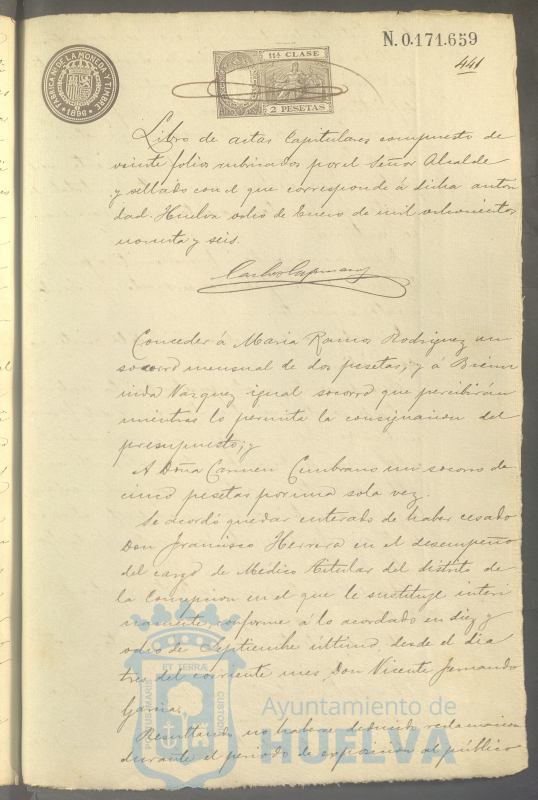 N. 0.171.659
441
FABRICA Nl. DE LA MONEDA Y TIMBRE
1896
11ª CLASE
2 PESETAS
Libro de actas Capitulares compuesto de
veinte folios rubricados por el Señor Alcalde
y sellado con el que corresponde á dicha autori
dad. Huelva ocho de Enero de mil ochocientos
noventa y seis.
Conceder á Maria Ramos Rodriguez un
socorro mensual de dos pesetas; y á Bienve
nida Vazquez igual socorro que percibirán
mientras lo permita la consignacion del
presupuesto; y
A Doña Carmen Cumbrano un socorro de
cinco pesetas por una sola vez.
Se acordó quedar enterado de haber cesado
Don Francisco Herrera en el desempeño
del cargo de Médico titular del distrito de
la Concepcion en el que le sustituye interi
namente, conforme á lo acordado en diez y
ocho de Septiembre último, desde el dia
tres del corriente mes, Don Vicente Fernando
Garcia.
Resultando no haberse deducido reclamacion
durante el periodo de exposicion al público
PORTUS MARIS
ET TERRÆ
CUSTODIA
Ayuntamiento de
HUELVA